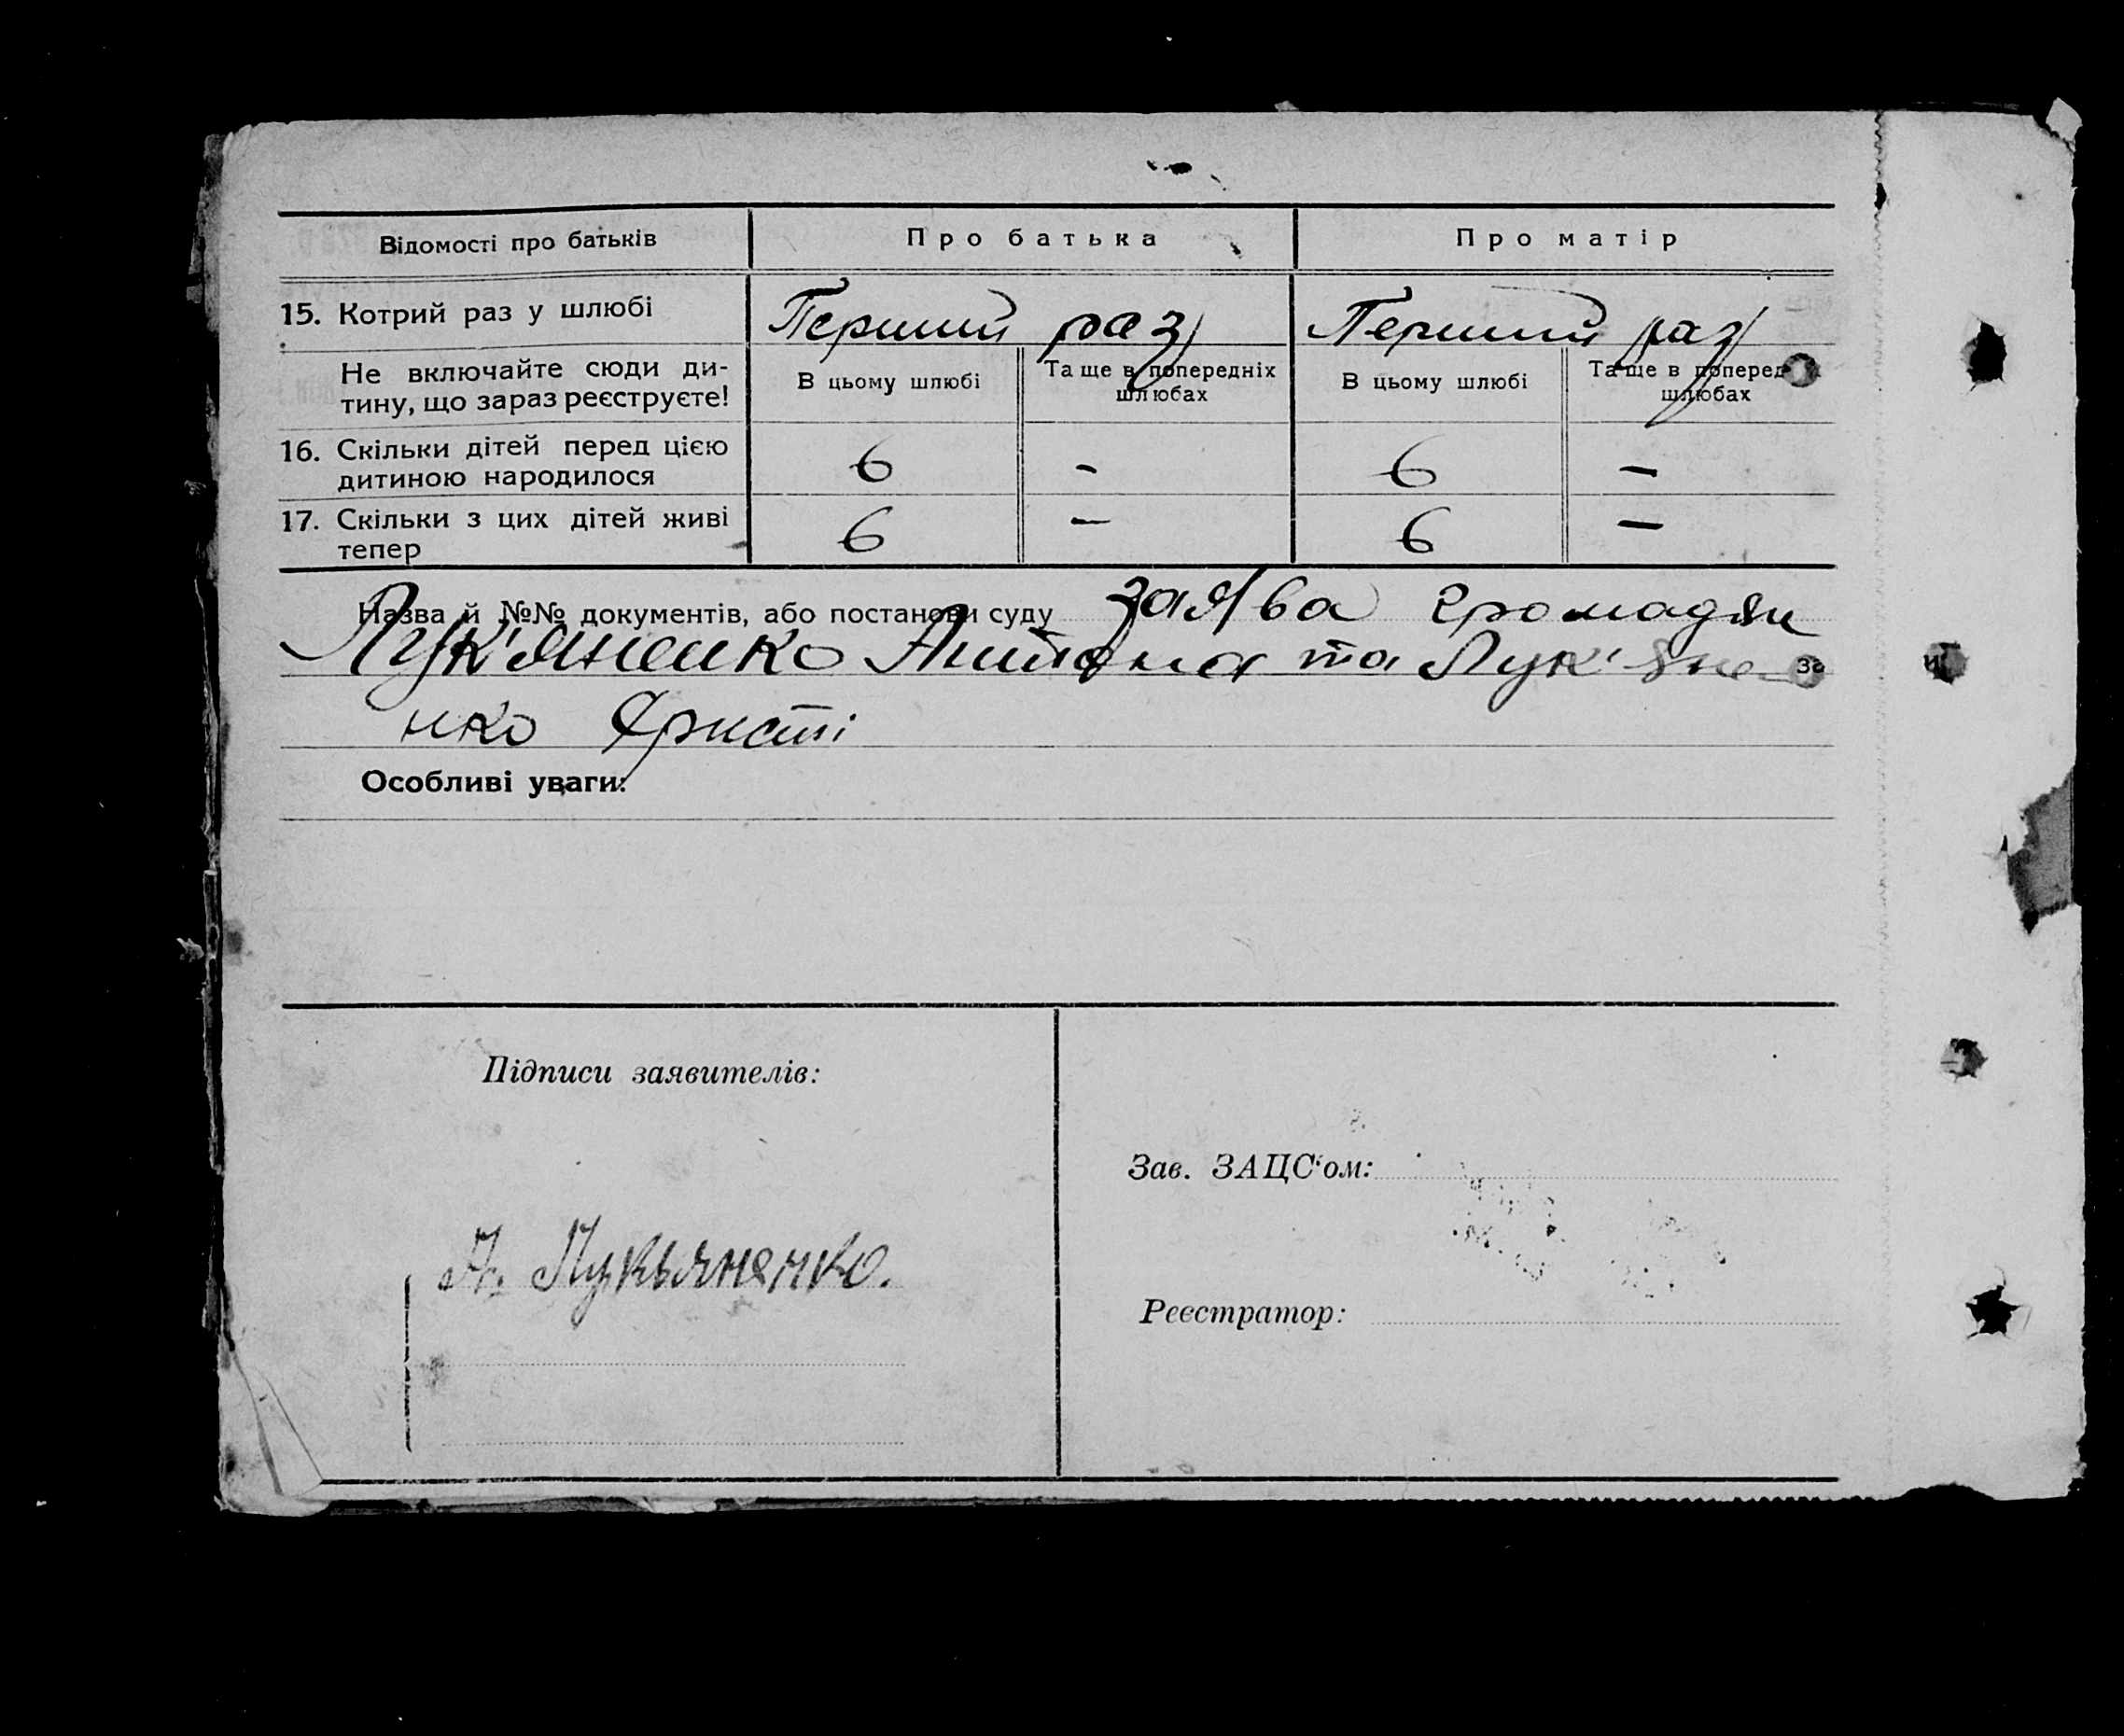 Відомості про батьків Про батька Про матір
15. Котрий раз у шлюбі Перший раз Перший раз
Не включайте сюди ди-
тину, що зараз реєструєте!
В цьому шлюбі Та ще в попередніх
шлюбах
В цьому шлюбі Та ще в поперед
шлюбах
16. Скільки дітей перед цією
дитиною народилося 6 - 6 -
17. Скільки з цих дітей живі
тепер 6 - 6 -
Назва й №№ документів, або постанови суду заява громадян
Лук'яненко Антона та Лук'яне
нко Христі
Особливі уваги:
Підписи заявителів:
Зав. ЗАЦС'ом:
А. Лукьяненко.
Реєстратор: